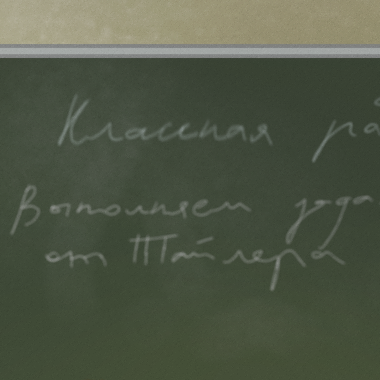 Классная ра
Выполняем зада
от Тайлера